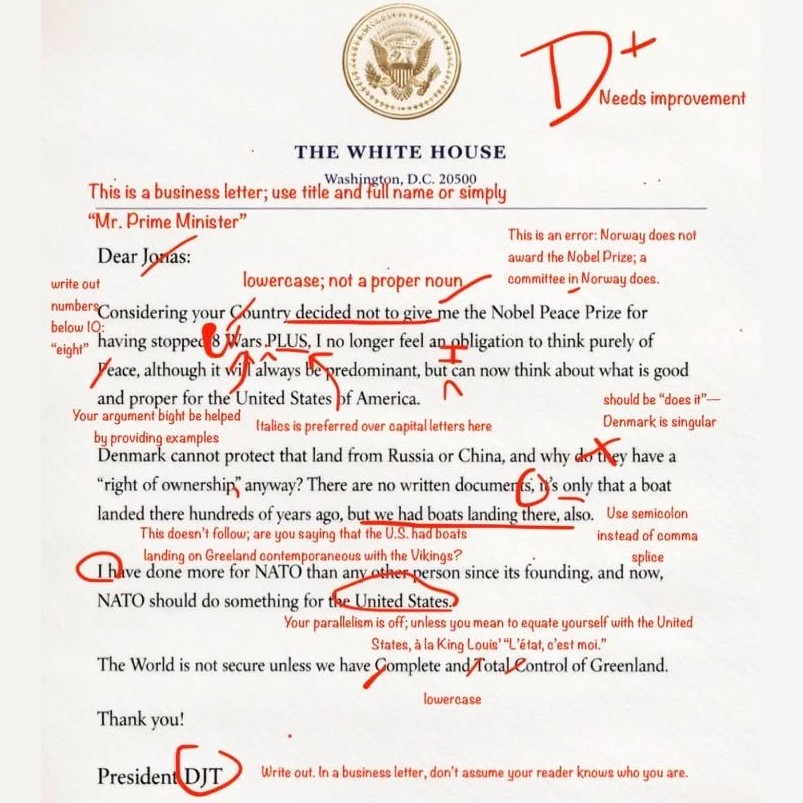 D+
Needs improvement
THE WHITE HOUSE
Washington, D.C. 20500
This is a business letter; use title and full name or simply
“Mr. Prime Minister”
Dear Jonas:
This is an error: Norway does not
award the Nobel Prize; a
committee in Norway does.
lowercase; not a proper noun
write out
numbers
below 10:
“eight”
Considering your Country decided not to give me the Nobel Peace Prize for
having stopped 8 Wars PLUS, I no longer feel an obligation to think purely of
Peace, although it will always be predominant, but I can now think about what is good
and proper for the United States of America.
should be “does it”—
Denmark is singular
Your argument bight be helped
by providing examples
Italics is preferred over capital letters here
Denmark cannot protect that land from Russia or China, and why do they have a
“right of ownership” anyway? There are no written documents, it’s only that a boat
landed there hundreds of years ago, but we had boats landing there, also.
Use semicolon
instead of comma
splice
This doesn’t follow; are you saying that the U.S. had boats
landing on Greeland contemporaneous with the Vikings?
I have done more for NATO than any other person since its founding, and now,
NATO should do something for the United States.
Your parallelism is off; unless you mean to equate yourself with the United
States, à la King Louis’ “L’état, c’est moi.”
The World is not secure unless we have Complete and Total Control of Greenland.
lowercase
Thank you!
President DJT
Write out. In a business letter, don’t assume your reader knows who you are.